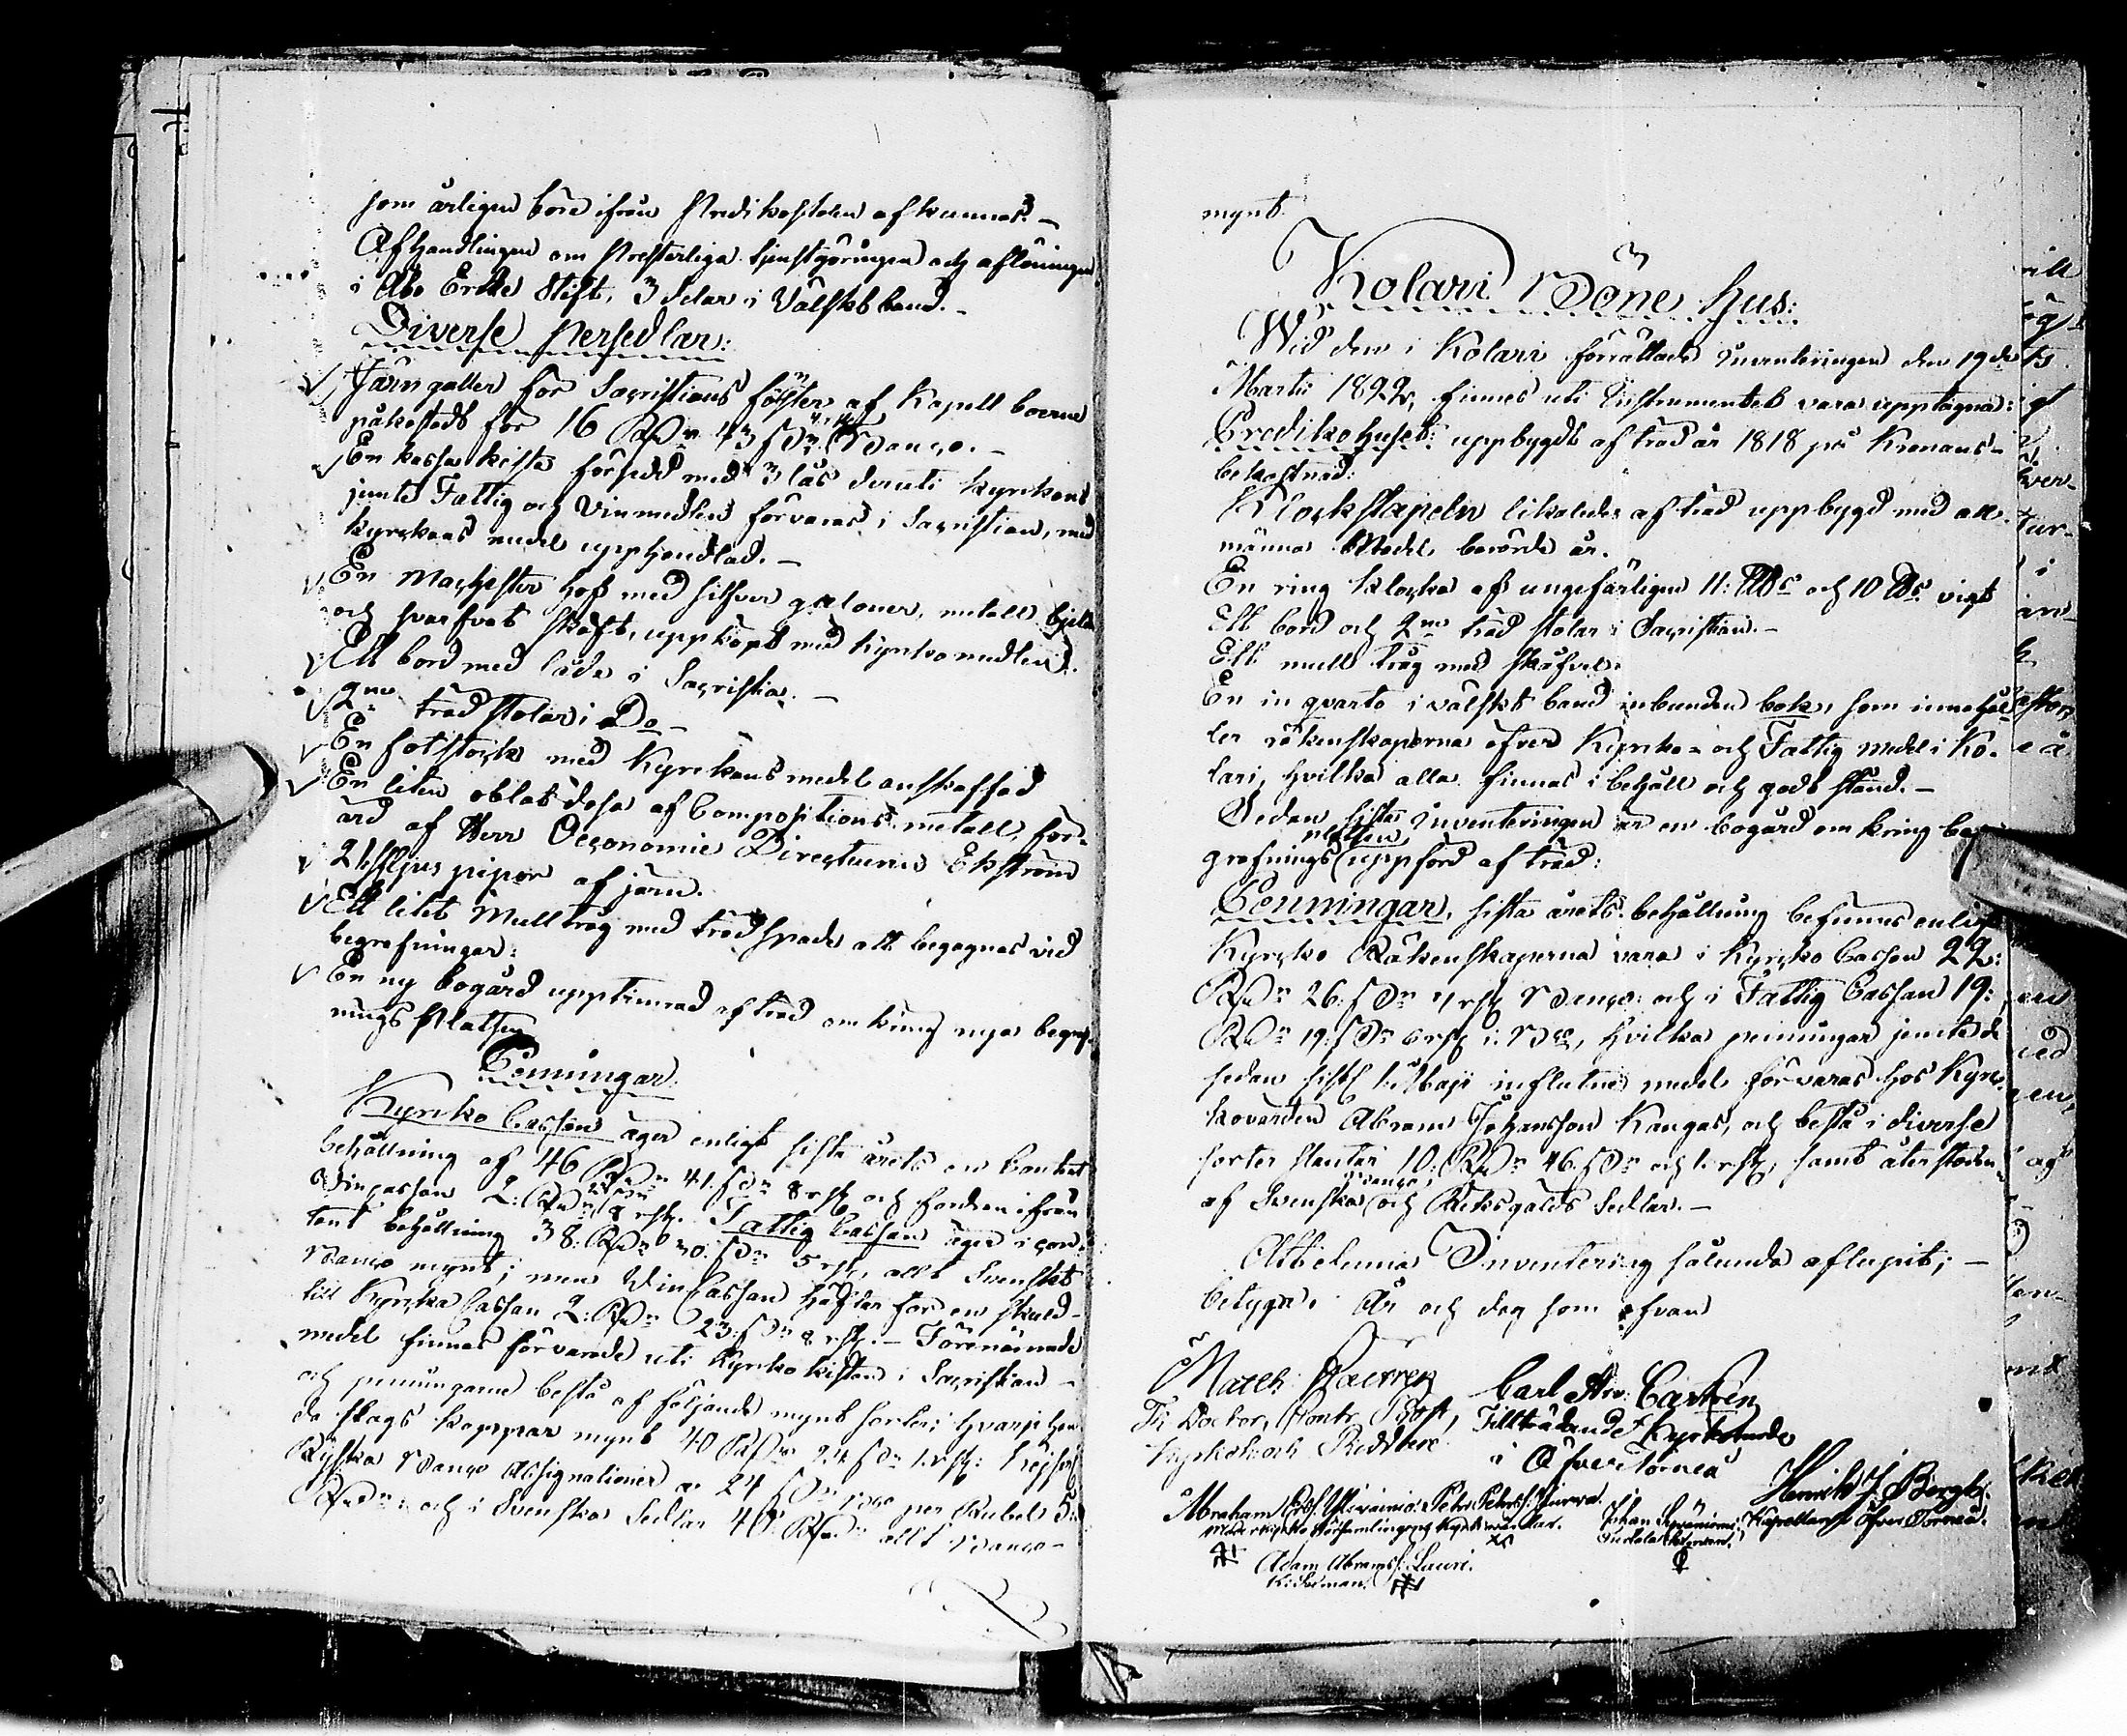 som årligen böra ifrån Predikostolen afkunnas. –
Afhandlingen om Presterliga tjenstgöringen och aflöningen
i Åbo Erke Stift, 3 delar i Välskt band. –
Diverse Persedlar:
Järn galler för Sacristians fönster af Kapell boerne
påkostadt för 16 RDr 43 sDr Banco. –
En kassa kista försedd med 3 lås deruti kyrkans
jemte Fattig och Vinmedlen förvaras i Sacristian, med
kyrckans medel upphandlad. –
En Machester Hof med silfver galoner, metall bjella
och svarfvat skaft, uppköpt med kyrkomedlen.
Ett bord med låda i Sacristia. –
2ne träd stolar i Do –
En fotstock med Kyrckans medel anskaffad
En liten oblat dosa af Compositions metall, för-
ärd af Herr Oeconomie Directeuren Ekström
2 Ljus pipor af järn.
Ett litet Mulltråg med trädspade att begagnas vid
begrafningar:
En ny bogård upptimrad af träd omkring nya begraf-
nings Platsen
Penningar.
Kyrcko Cassan äger enligt sista årets en Contant
behållning af 46 RDr 41 sDr 8 rst och fordran ifrån
Vincassan 2: RDr 23 sDr 8 rst. Fattig Cassan äger i con-
tant behållning 38: RDr 30 sDr 5 rst, allt Svenskt
Banco mynt; men Vin Cassan häftar för en skuld
till Kyrcka Cassan 2: RDr 23: sDr 8 rst. – Förenämnde
medel finnas förvarade uti Kyrko kistan i Sacristian –
och penningarne bestå af följande mynt sorter; hvarjehan-
da slags koppar mynt 40 RDr 24 sDr 1 rst: Kejserl
Ryska Banco Assignationer a 24 sDr Bco per Rubel 5:
RDr: och i Svenska Sedlar 40: RDr allt Banco –
mynt.
Kolari Böne hus:
Wid den i Kolari förrättade Inventeringen den 19de
Martii 1822, finnes uti Instrumentet vara upptagna:
Predikohuset: uppbygdt af träd år 1818 på Kronans
bekostnad:
Klockstapeln likaledes af träd uppbygd med all-
männa Medel berörde år.
En ring klocka af ungefärligen 11: och 10 vigt
Ett bord och 2ne träd stolar i Sacristian. –
Ett mull tråg med skåfvel.
En in qvarto i välskt band inbunden bok, som innehål-
ler räkenskaperna öfver Kyrko- och Fattig medel i Ko-
lari, hvilka alla finnas i behåll och godt stånd. –
Sedan sista Inventeringen är en bogård omkring be-
grafnings platsen uppförd af träd:
Penningar, sista årets behållning befinnes enligt
Kyrcko Räkenskaperna vara i Kyrcko Cassan 22:
RDr 26: sDr 4 rst Banco: och i Fattig Cassan 19:
RDr 19: sDr 6 rst i Bco, hvilka penningar jemte de
sedan sist influtne medel förvaras hos Kyrc-
kovärden Abram Johansson Kangas, och bestå i diverse
sorter slantar 10: RDr 46 sDr och 1 rst, samt återstoden
af Svenska Banco och Riksgälds Sedlar. –
Att denna Inventering sålunda aflupit; –
betyga. År och dag som ofvan
Matth:
Th Doctor, Contr Prost,
Kyrkoh och Riddare
Carl Arv: Castrén
Tillträdande Kyrkoherde
i Öfvertorneå
Abraham Ylivainio Petr Peterss:
moderkyrko församlingens Kyrkvärdar.
Johan
Turtola
Henrik J Bergh
Kapellan i Öfver Torneå.
Adam Abramss: Lauri.